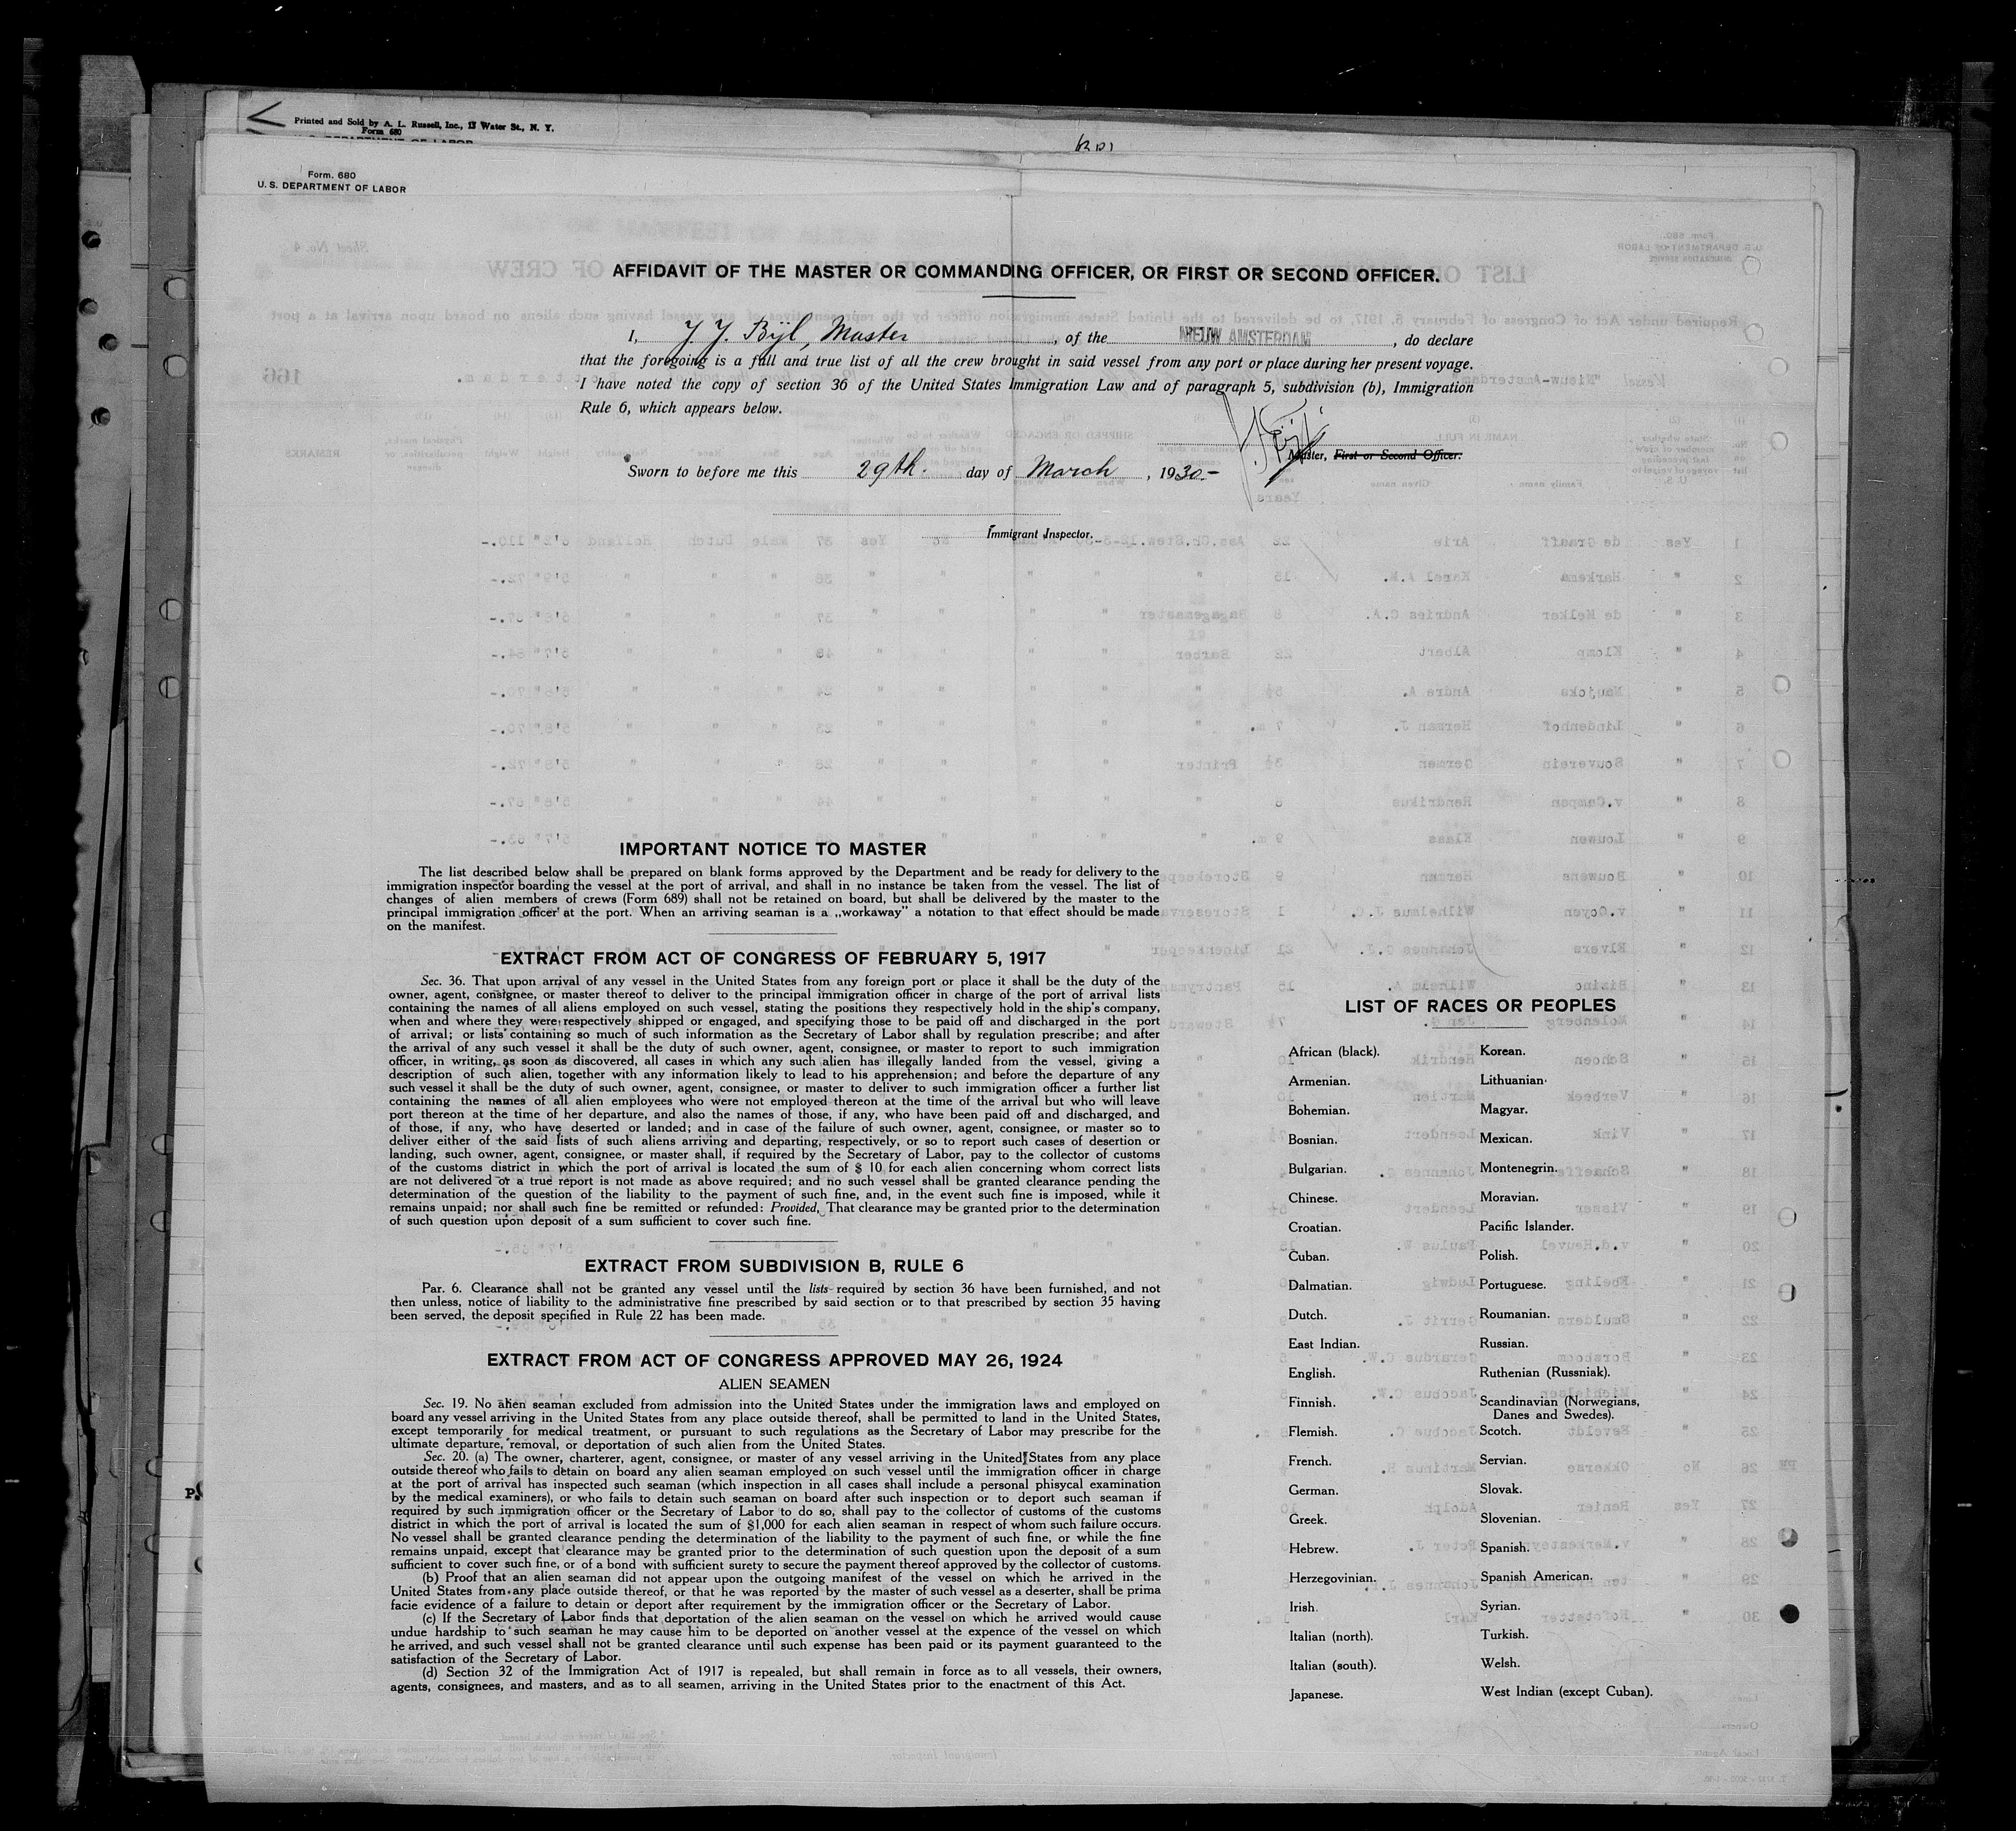 Printed and Sold by A. L. Russell, Inc., 13 Water St., N. Y.
Form 680
U. S. DEPARTMENT OF LABOR
Form. 680
U. S. DEPARTMENT OF LABOR
AFFIDAVIT OF THE MASTER OR COMMANDING OFFICER, OR FIRST OR SECOND OFFICER.
I, J. J. Bijl, Master, of the NIEUW AMSTERDAM, do declare
that the foregoing is a full and true list of all the crew brought in said vessel from any port or place during her present voyage.
I have noted the copy of section 36 of the United States Immigration Law and of paragraph 5, subdivision (b), Immigration
Rule 6, which appears below.
Master, First or Second Officer.
Sworn to before me this 29th. day of March, 1930.-
Immigrant Inspector.
IMPORTANT NOTICE TO MASTER
The list described below shall be prepared on blank forms approved by the Department and be ready for delivery to the
immigration inspector boarding the vessel at the port of arrival, and shall in no instance be taken from the vessel. The list of
changes of alien members of crews (Form 689) shall not be retained on board, but shall be delivered by the master to the
principal immigration officer at the port. When an arriving seaman is a ,,workaway" a notation to that effect should be made
on the manifest.
EXTRACT FROM ACT OF CONGRESS OF FEBRUARY 5, 1917
Sec. 36. That upon arrival of any vessel in the United States from any foreign port or place it shall be the duty of the
owner, agent, consignee, or master thereof to deliver to the principal immigration officer in charge of the port of arrival lists
containing the names of all aliens employed on such vessel, stating the positions they respectively hold in the ship's company,
when and where they were respectively shipped or engaged, and specifying those to be paid off and discharged in the port
of arrival; or lists containing so much of such information as the Secretary of Labor shall by regulation prescribe; and after
the arrival of any such vessel it shall be the duty of such owner, agent, consignee, or master to report to such immigration
officer, in writing, as soon as discovered, all cases in which any such alien has illegally landed from the vessel, giving a
description of such alien, together with any information likely to lead to his apprehension; and before the departure of any
such vessel it shall be the duty of such owner, agent, consignee, or master to deliver to such immigration officer a further list
containing the names of all alien employees who were not employed thereon at the time of the arrival but who will leave
port thereon at the time of her departure, and also the names of those, if any, who have been paid off and discharged, and
of those, if any, who have deserted or landed; and in case of the failure of such owner, agent, consignee, or master so to
deliver either of the said lists of such aliens arriving and departing, respectively, or so to report such cases of desertion or
landing, such owner, agent, consignee, or master shall, if required by the Secretary of Labor, pay to the collector of customs
of the customs district in which the port of arrival is located the sum of $ 10 for each alien concerning whom correct lists
are not delivered or a true report is not made as above required; and no such vessel shall be granted clearance pending the
determination of the question of the liability to the payment of such fine, and, in the event such fine is imposed, while it
remains unpaid; nor shall such fine be remitted or refunded: Provided, That clearance may be granted prior to the determination
of such question upon deposit of a sum sufficient to cover such fine.
EXTRACT FROM SUBDIVISION B, RULE 6
Par. 6. Clearance shall not be granted any vessel until the lists required by section 36 have been furnished, and not
then unless, notice of liability to the administrative fine prescribed by said section or to that prescribed by section 35 having
been served, the deposit specified in Rule 22 has been made.
EXTRACT FROM ACT OF CONGRESS APPROVED MAY 26, 1924
ALIEN SEAMEN
Sec. 19. No alien seaman excluded from admission into the United States under the immigration laws and employed on
board any vessel arriving in the United States from any place outside thereof, shall be permitted to land in the United States,
except temporarily for medical treatment, or pursuant to such regulations as the Secretary of Labor may prescribe for the
ultimate departure, removal, or deportation of such alien from the United States.
Sec. 20. (a) The owner, charterer, agent, consignee, or master of any vessel arriving in the United States from any place
outside thereof who fails to detain on board any alien seaman employed on such vessel until the immigration officer in charge
at the port of arrival has inspected such seaman (which inspection in all cases shall include a personal phisycal examination
by the medical examiners), or who fails to detain such seaman on board after such inspection or to deport such seaman if
required by such immigration officer or the Secretary of Labor to do so, shall pay to the collector of customs of the customs
district in which the port of arrival is located the sum of $1,000 for each alien seaman in respect of whom such failure occurs.
No vessel shall be granted clearance pending the determination of the liability to the payment of such fine, or while the fine
remains unpaid, except that clearance may be granted prior to the determination of such question upon the deposit of a sum
sufficient to cover such fine, or of a bond with sufficient surety to secure the payment thereof approved by the collector of customs.
(b) Proof that an alien seaman did not appear upon the outgoing manifest of the vessel on which he arrived in the
United States from any place outside thereof, or that he was reported by the master of such vessel as a deserter, shall be prima
facie evidence of a failure to detain or deport after requirement by the immigration officer or the Secretary of Labor.
(c) If the Secretary of Labor finds that deportation of the alien seaman on the vessel on which he arrived would cause
undue hardship to such seaman he may cause him to be deported on another vessel at the expence of the vessel on which
he arrived, and such vessel shall not be granted clearance until such expense has been paid or its payment guaranteed to the
satisfaction of the Secretary of Labor.
(d) Section 32 of the Immigration Act of 1917 is repealed, but shall remain in force as to all vessels, their owners,
agents, consignees, and masters, and as to all seamen, arriving in the United States prior to the enactment of this Act.
LIST OF RACES OR PEOPLES
African (black).
Armenian.
Bohemian.
Bosnian.
Bulgarian.
Chinese.
Croatian.
Cuban.
Dalmatian.
Dutch.
East Indian.
English.
Finnish.
Flemish.
French.
German.
Greek.
Hebrew.
Herzegovinian.
Irish.
Italian (north).
Italian (south).
Japanese.
Korean.
Lithuanian.
Magyar.
Mexican.
Montenegrin.
Moravian.
Pacific Islander.
Polish.
Portuguese.
Roumanian.
Russian.
Ruthenian (Russniak).
Scandinavian (Norwegians,
Danes and Swedes).
Scotch.
Servian.
Slovak.
Slovenian.
Spanish.
Spanish American.
Syrian.
Turkish.
Welsh.
West Indian (except Cuban).